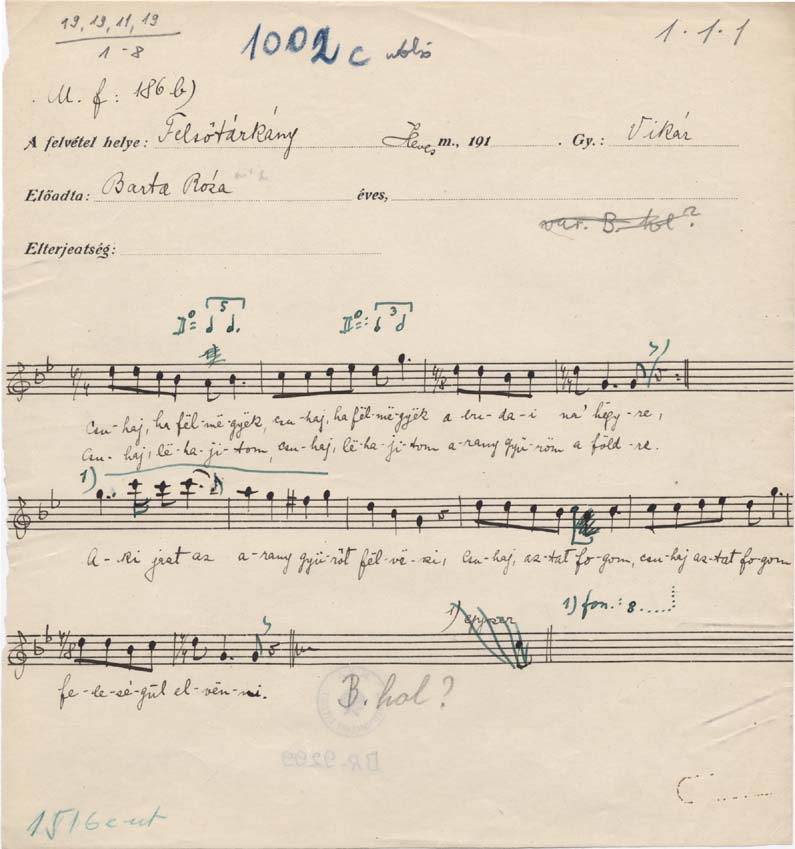 19, 19, 11, 19
1-8
1002 c utolsó
1·1·1
M. f: 186 b)
A felvétel helye: Felsőtárkány Heves m., 191 . Gy.: Vikár
Előadta: Barta Róza éves,
var. B. hol?
Elterjeatség:
5
3
4/4 4/8 4/4
Csu-haj, ha fël-më-gyëk, csu-haj, ha fël-më-gyëk a bu-da-i na' hëgy-re,
Csu-haj, lë-ha-ji-tom, csu-haj, lë-ha-ji-tom a-rany gyü-röm a föld-re.
1)
A-ki jzt az a-rany gyü-rőt fël-vë-szi, csu-haj, asz-tat fo-gom, csu-haj asz-tat fo-gom
1) egyszer
1) fon.: 8.....
4/8 4/4
fe-le-sé-gül el-vën-ni.
B. hol?
DR-9299
1516 c-ut